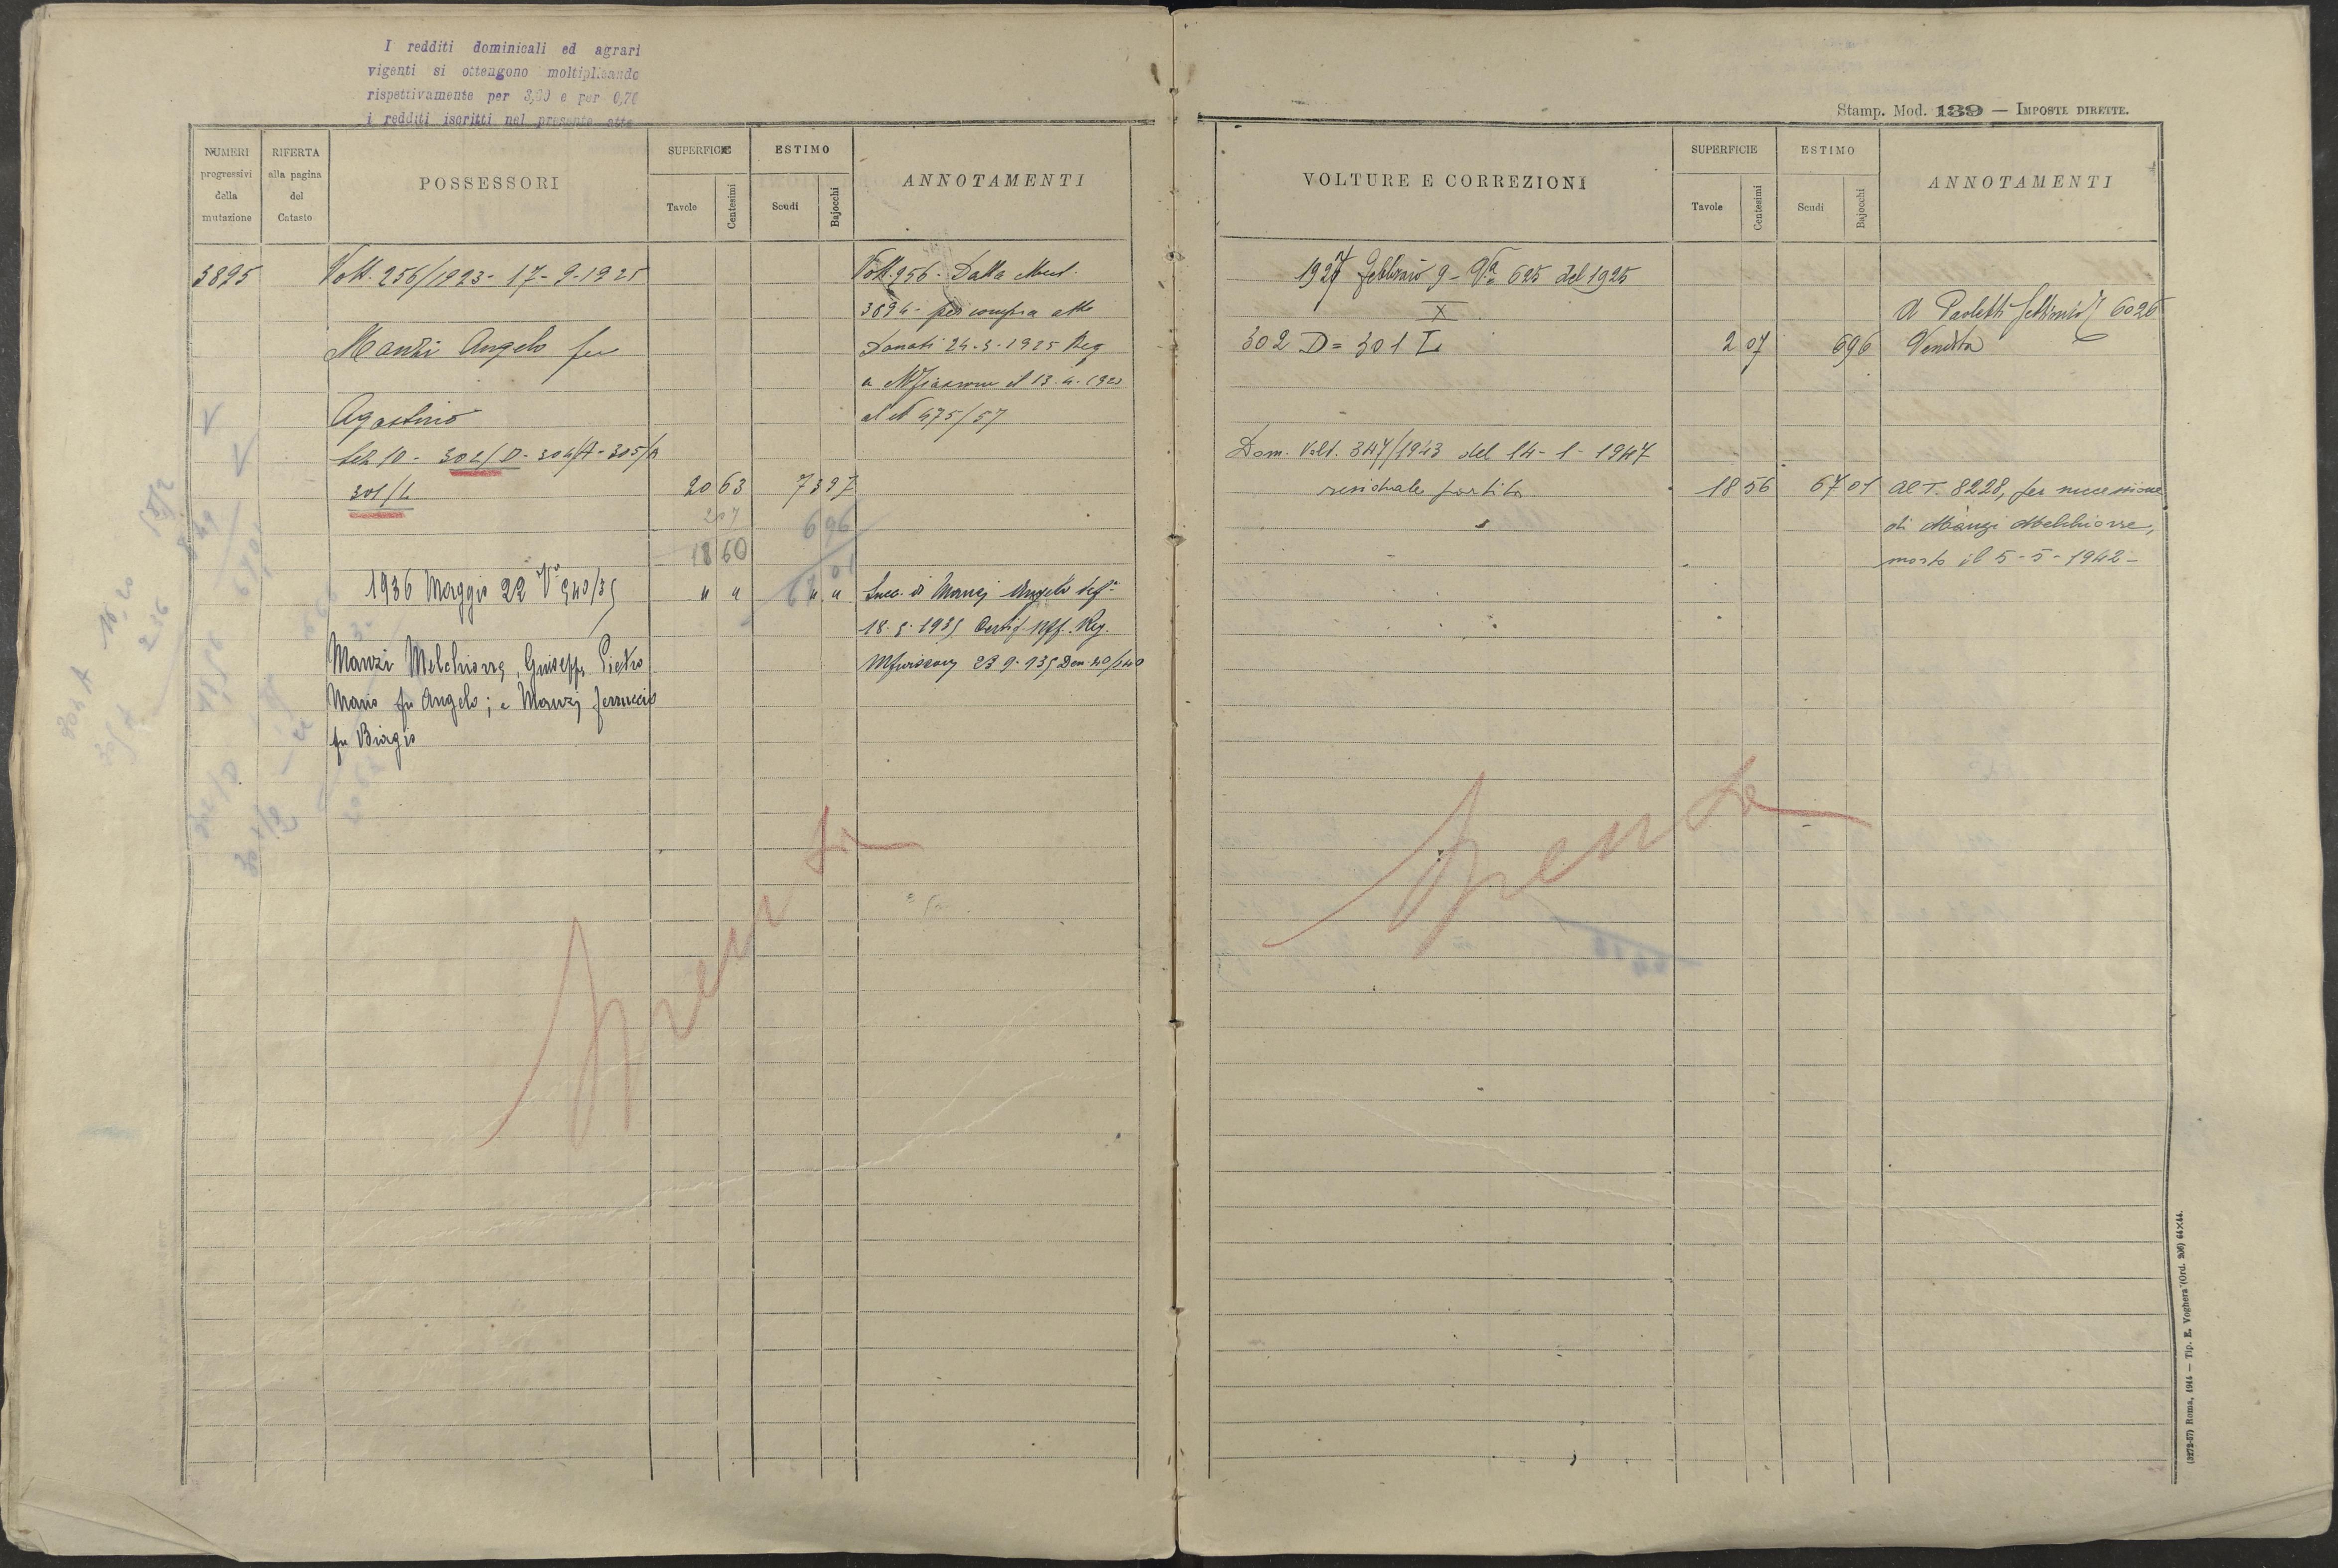 I redditi dominicali ed agrari
vigenti si ottengono moltiplicando
rispettivamente per 3,60 e per 0,70
i redditi iscritti nel presente atto
NUMERI progressivi della mutazione
RIFERTA alla pagina del Catasto
POSSESSORI
SUPERFICIE
Tavole
Centesimi
ESTIMO
Scudi
Bajocchi
ANNOTAMENTI
3895
Volt. 256/1923 - 17-9-1925
Manzi Angelo fu
Agostino
Sez 10 - 302/D - 304/A - 305/A
301/L
20 63
73 97
207
6 96
18 60
67 01
Volt. 256 - Dalla Mut.
3894 - per compra atto
Donati 24-3-1925 Reg
a 13-4-192
al N 475/57
1936 Maggio 22 Va 540/35
" "
" "
Manzi Melchiorre, Giuseppe, Pietro
Mario fu Angelo; e Manzi Ferruccio
fu Biagio
Succ. di Manzi Angelo
18-5-1935 Certif. Uff. Reg.
23-9-135 Den. 40/240
Spenta
Stamp. Mod. 139 — IMPOSTE DIRETTE.
VOLTURE E CORREZIONI
SUPERFICIE
Tavole
Centesimi
ESTIMO
Scudi
Bajocchi
ANNOTAMENTI
1927 Febbraio 9 - Va 625 del 1925
X
A Paoletti 6026
302 D = 301 L
2 07
6 96
Vendita
Dom. Volt. 347/1943 del 14-1-1947
residuale partita
18 56
67 01
al T. 8228, per successione
di Manzi Melchiorre,
morto il 5-5-1942-
Spenta
(3272-57) Roma, 1914 — Tip. E. Voghera (Ord. 206) 64×44.